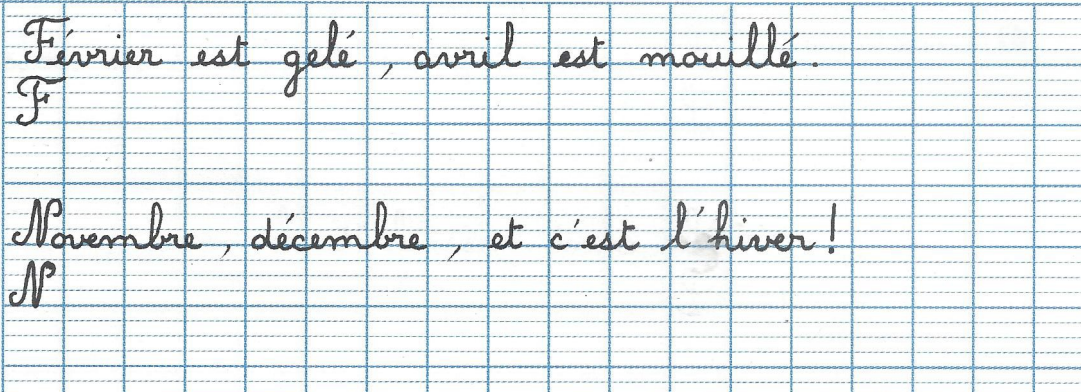 Février est gelé, avril est mouillé.
F
Novembre, décembre, et c'est l'hiver!
N